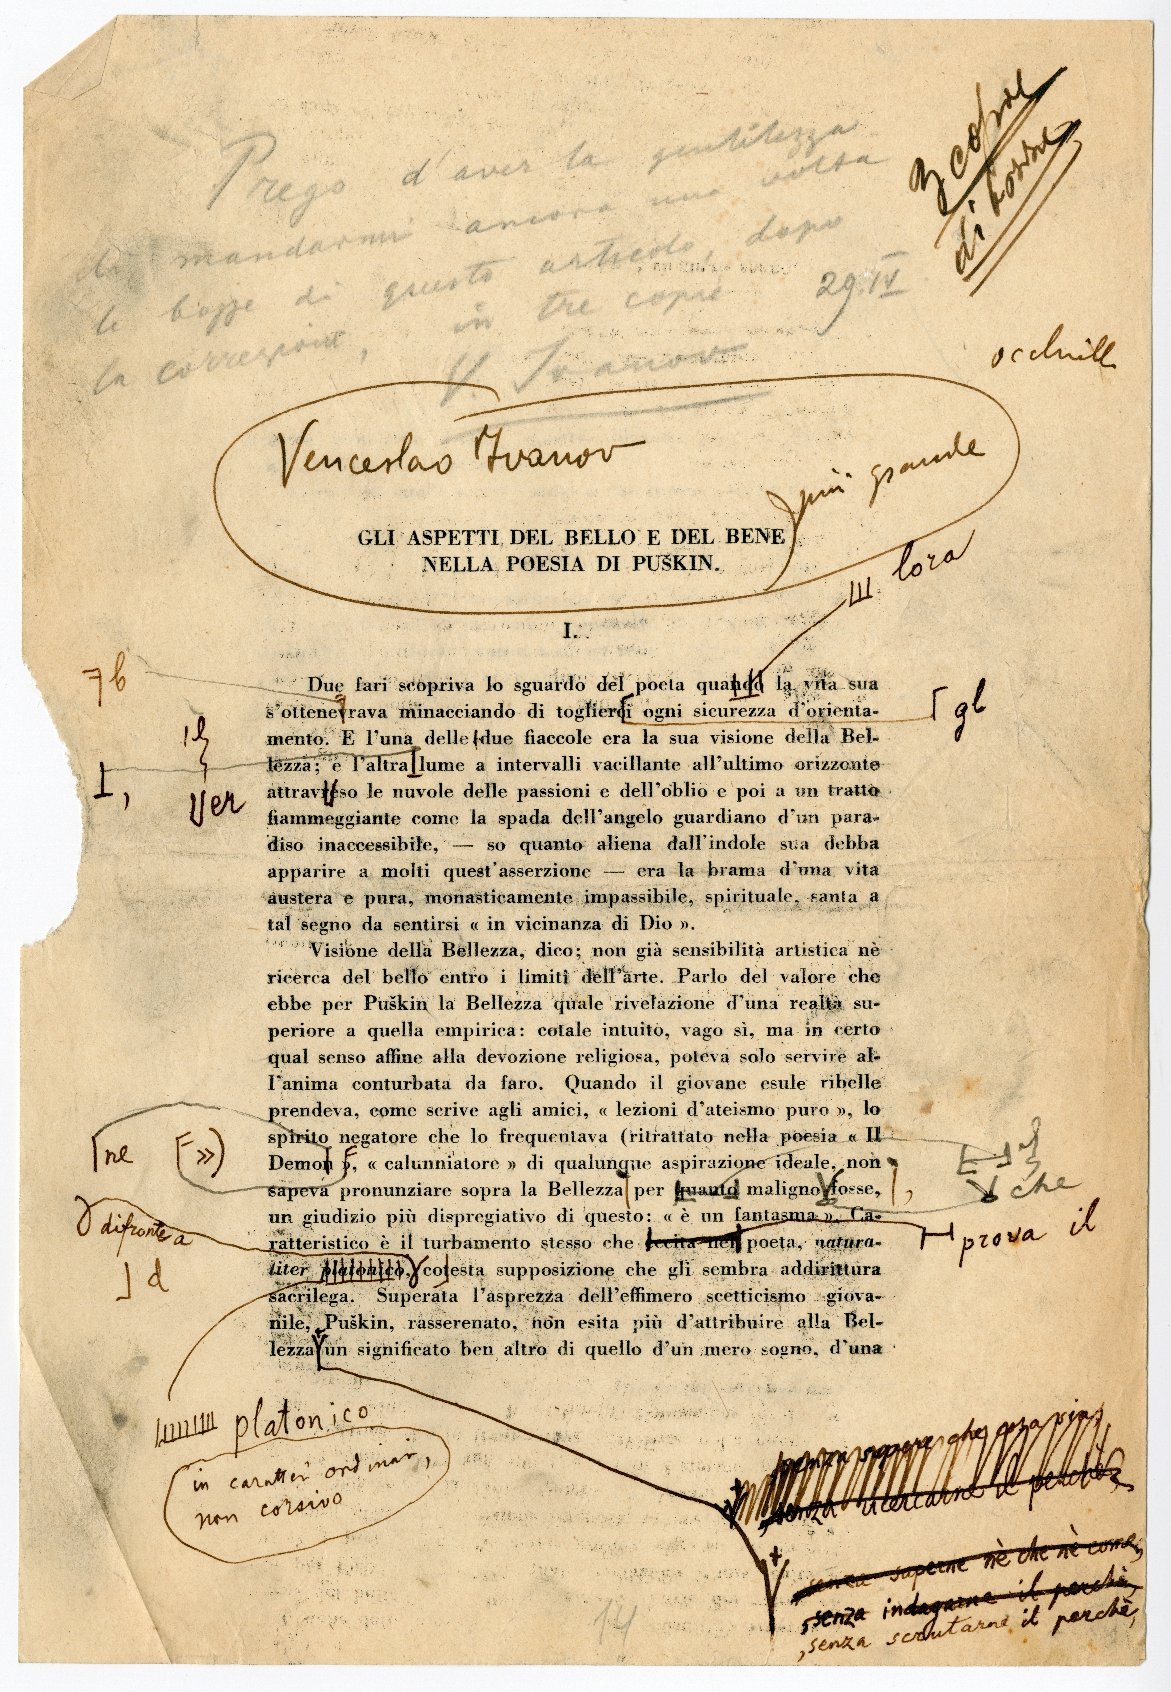 3 copie
di bozze
Prego d'aver la gentilezza
di mandarmi ancora una volta
le bozze di questo articolo, dopo
la correzione, in tre copie 29.IV
V. Ivanov
Venceslao Ivanov
più grande
GLI ASPETTI DEL BELLO E DEL BENE
NELLA POESIA DI PUŠKIN.
lora
I.
b
Due fari scopriva lo sguardo del poeta quando la vita sua
s'ottenevrava minacciando di toglierdi ogni sicurezza d'orienta-
gl
mento. E l'una delle due fiaccole era la sua visione della Bel-
lezza; e l'altra lume a intervalli vacillante all'ultimo orizzonte
I,
ver
attravreso le nuvole delle passioni e dell'oblio e poi a un tratto
fiammeggiante come la spada dell'angelo guardiano d'un para-
diso inaccessibile, — so quanto aliena dall'indole sua debba
apparire a molti quest'asserzione — era la brama d'una vita
austera e pura, monasticamente impassibile, spirituale, santa a
tal segno da sentirsi « in vicinanza di Dio ».
Visione della Bellezza, dico; non già sensibilità artistica nè
ricerca del bello entro i limiti dell'arte. Parlo del valore che
ebbe per Puškin la Bellezza quale rivelazione d'una realtà su-
periore a quella empirica: cotale intuito, vago sì, ma in certo
qual senso affine alla devozione religiosa, poteva solo servire al-
l'anima conturbata da faro. Quando il giovane esule ribelle
prendeva, come scrive agli amici, « lezioni d'ateismo puro », lo
spirito negatore che lo frequentava (ritrattato nella poesia « Il
ne »)
Demon , « calunniatore » di qualunque aspirazione ideale, non
sapeva pronunziare sopra la Bellezza per quanto maligno fosse,
, che
un giudizio più dispregiativo di questo: « è un fantasma ». Ca-
difronte a
ratteristico è il turbamento stesso che eccita nel poeta, natura-
prova il
d
liter platonico, cotesta supposizione che gli sembra addirittura
sacrilega. Superata l'asprezza dell'effimero scetticismo giova-
nile, Puškin, rasserenato, non esita più d'attribuire alla Bel-
lezza un significato ben altro di quello d'un mero sogno, d'una
platonico
in caratteri ordinari,
non corsivo
senza sapere che cosa sia,
senza ricercarne il perchè,
senza saperne nè che nè come,
senza indagarne il perchè,
, senza scrutarne il perchè,
14